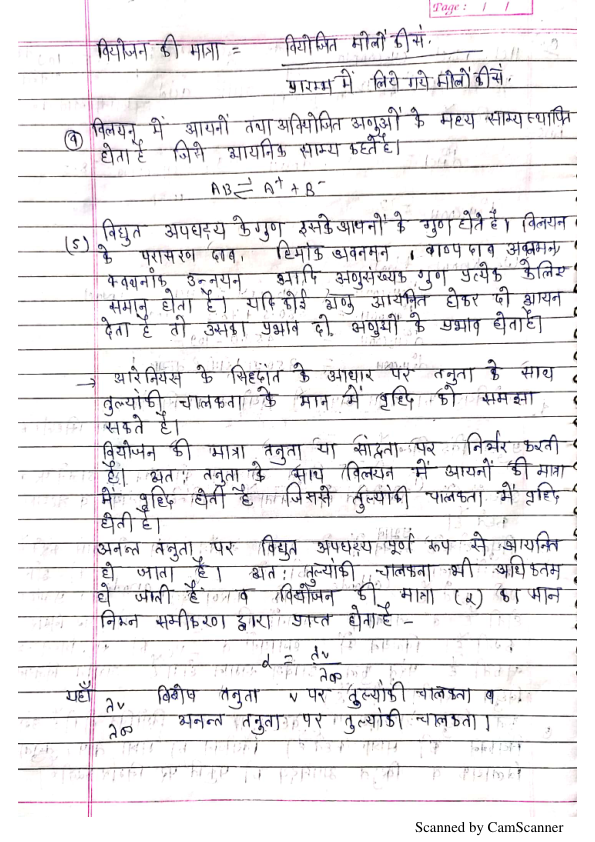 Page: / /
वियोजन की मात्रा = वियोजित मोलों की सं.
प्रारम्भ में लिये गये मोलों की सं.
(४) विलयन में आयनों तथा अवियोजित अणुओं के मध्य साम्य स्थापित
होता है जिसे आयनिक साम्य कहते है।
AB ⇌ A⁺ + B⁻
(5) विद्युत अपघट्य के गुण इसके आयनों के गुण होते है। विलयन
के परासरण दाब, हिमांक अवनमन, वाष्प दाब अवनमन,
क्वथनांक उन्नयन आदि अणुसंख्यक गुण प्रत्येक के लिए
समान होता है। यदि कोई अणु आयनित होकर दो आयन
देता है तो उसका प्रभाव दो अणुओं के प्रभाव होता है।
→ आरेनियस के सिद्दांत के आधार पर तनुता के साथ
तुल्यांकी चालकता के मान में वृद्दि को समझा
सकते है।
वियोजन की मात्रा तनुता या सांद्रता पर निर्भर करती
है। अत: तनुता के साथ विलयन में आयनों की मात्रा
में वृद्दि होती है जिससे तुल्यांकी चालकता में वृद्दि
होती है।
अनन्त तनुता पर विद्युत अपघट्य पूर्ण रूप से आयनित
हो जाता है। अत: तुल्यांकी चालकता भी अधिकतम
हो जाती है व वियोजन की मात्रा (α) का मान
निम्न समीकरण द्वारा प्राप्त होता है –
α = λv
λ∞
यहाँ λv विशेष तनुता v पर तुल्यांकी चालकता व
λ∞ अनन्त तनुता पर तुल्यांकी चालकता।
Scanned by CamScanner